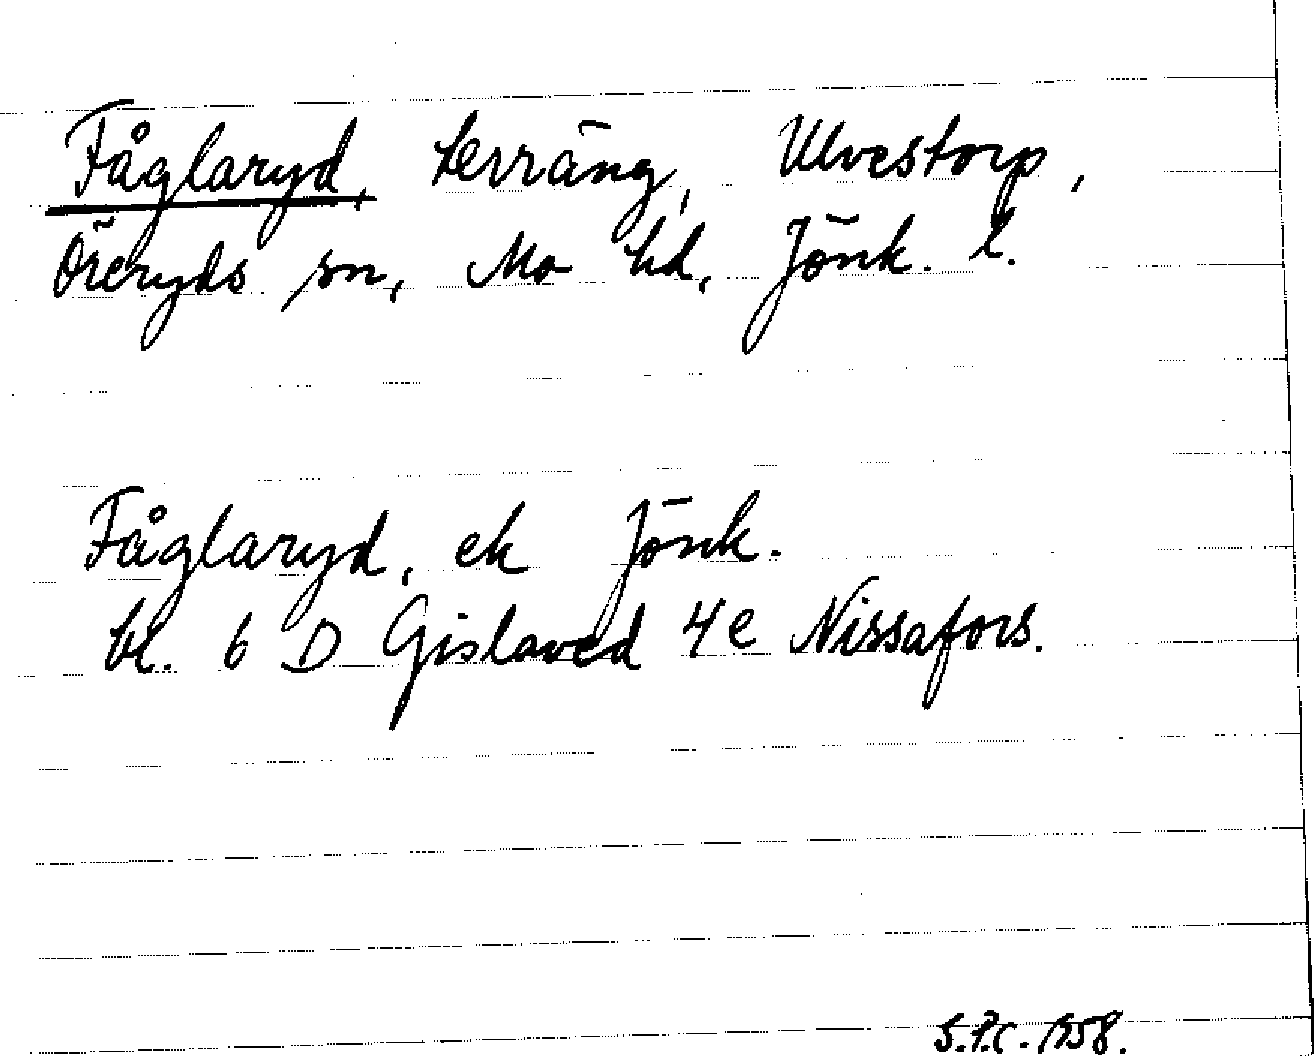 Fåglaryd, terräng, Ulvestorp,
Öreryds sn, Mo hd, Jönk. l.
Fåglaryd, ek Jönk.
bl. 6 D Gislaved 4e Nissafors.
S.P.C. 1958.